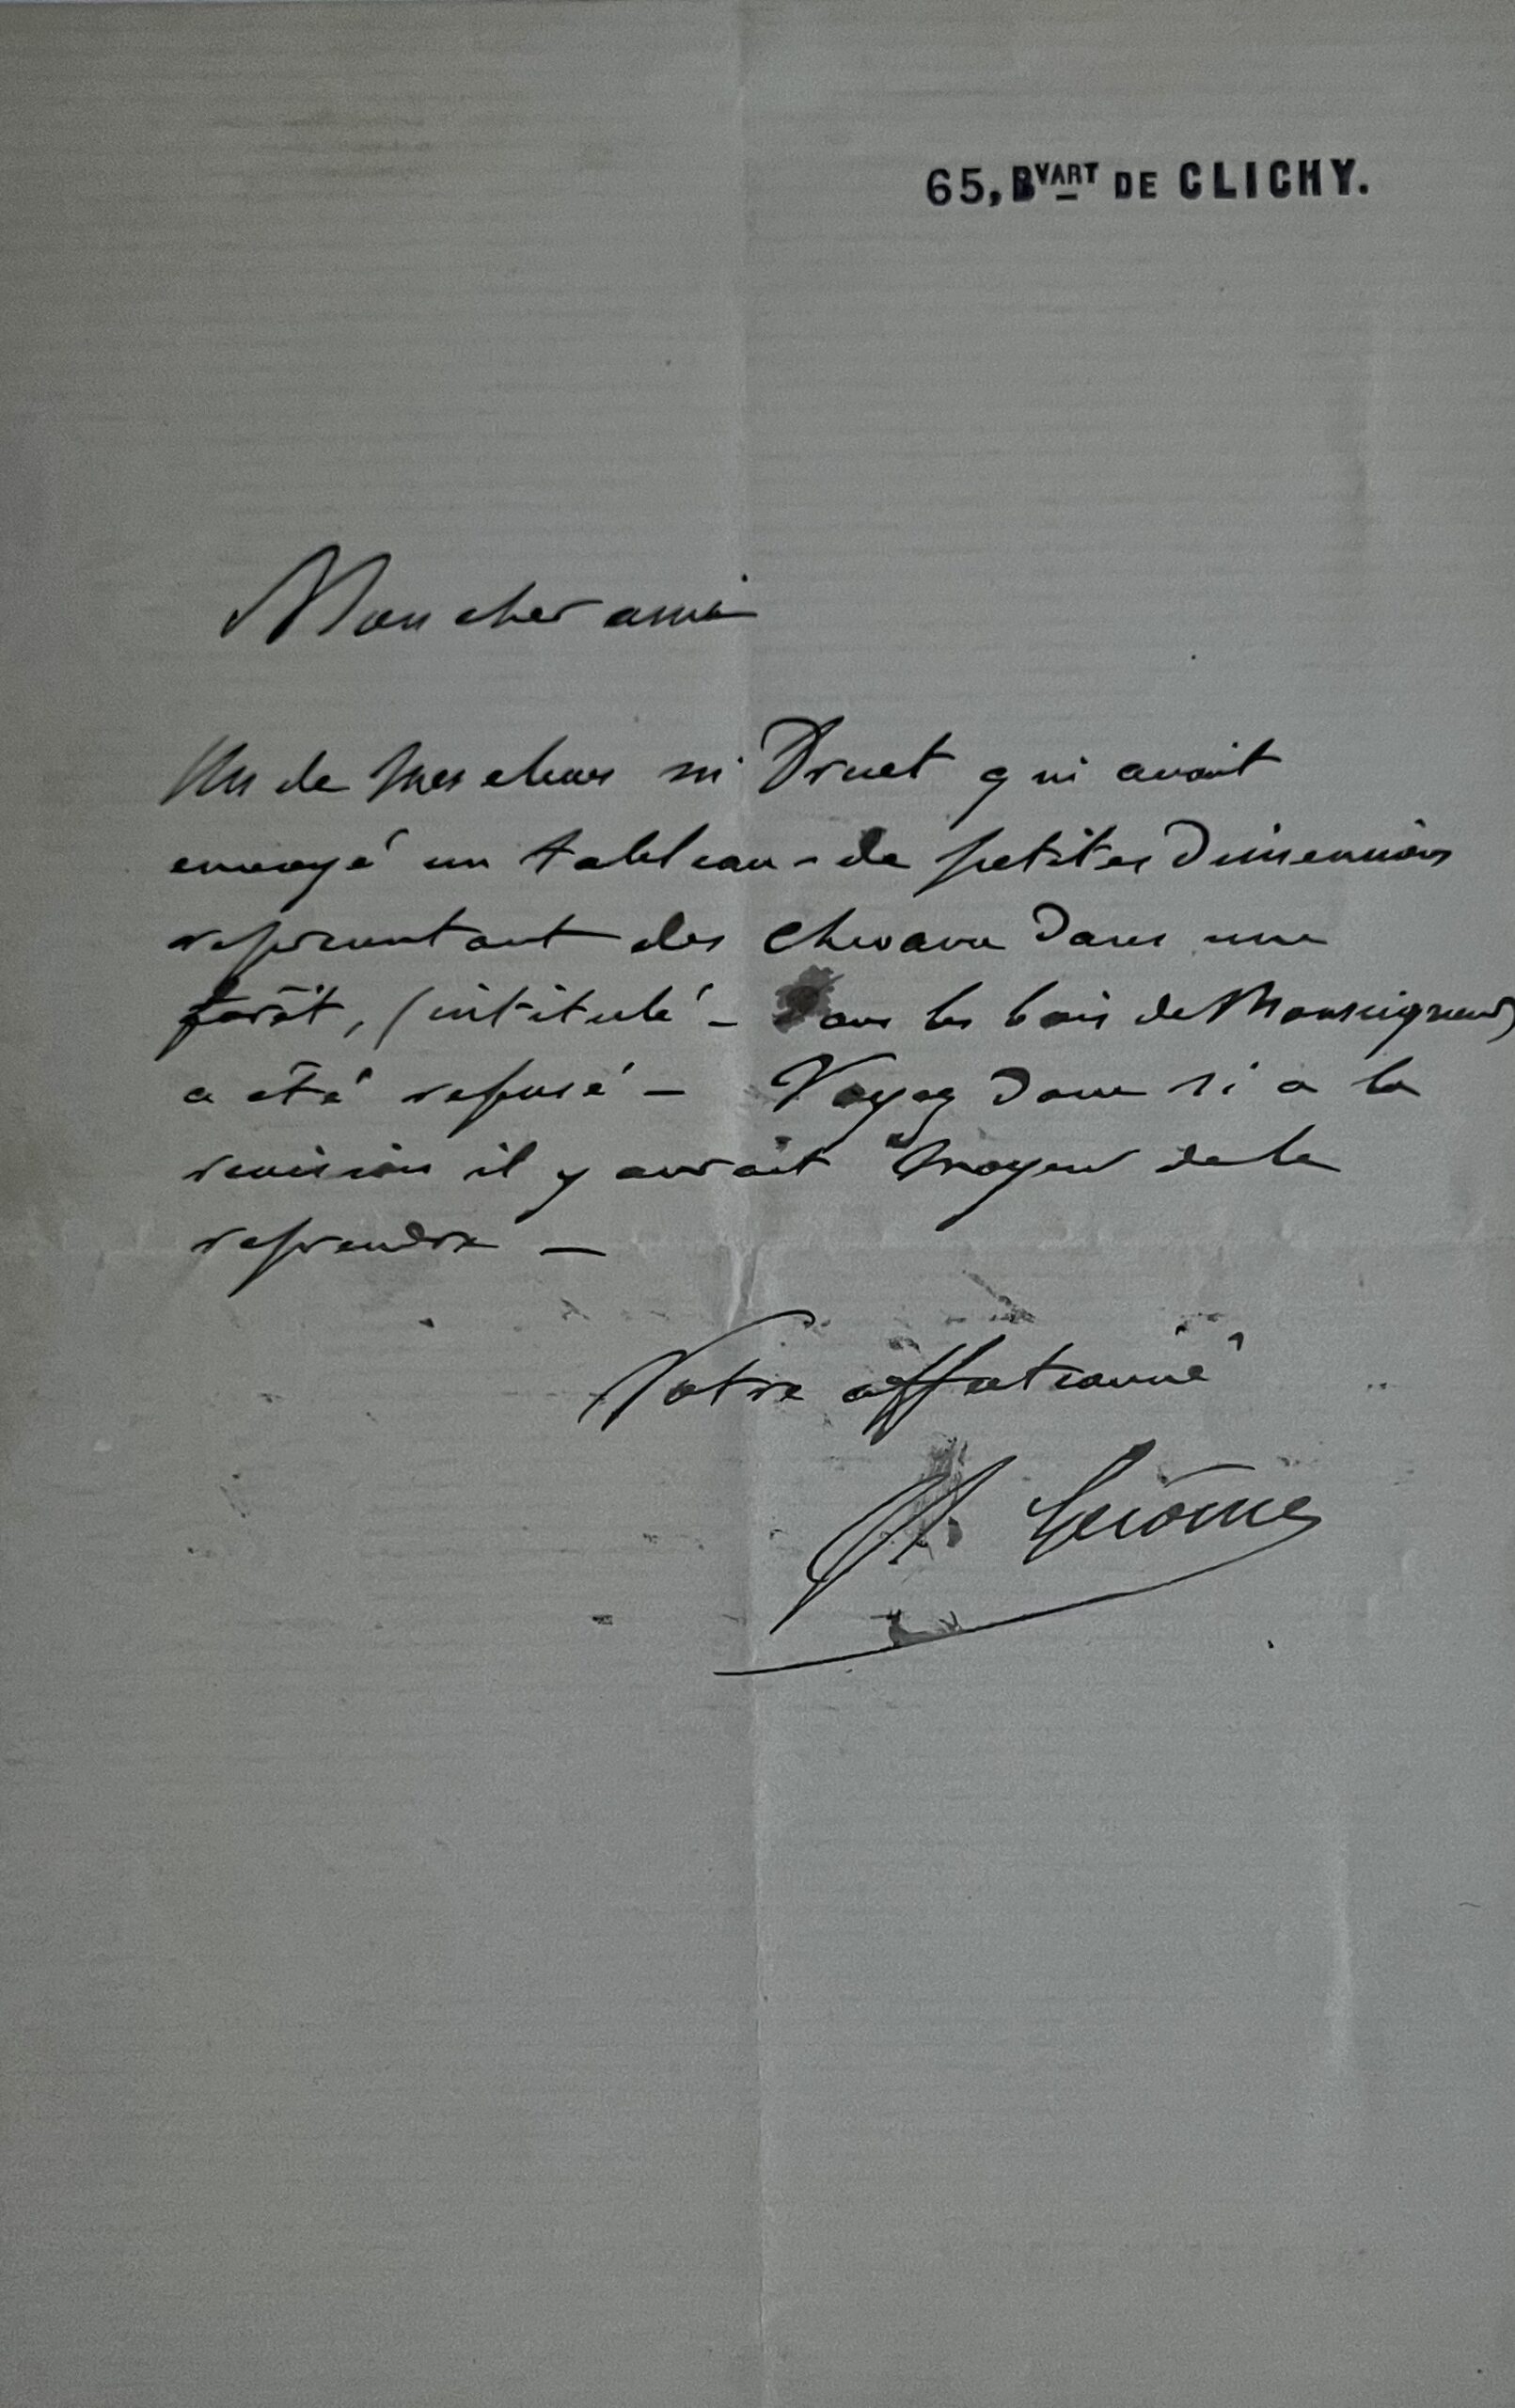 65, BVART DE CLICHY.
Mon cher ami
Un de mes élèves mr Druet qui avait
envoyé un tableau - de petites dimensions
représentant des chevaux dans une
forêt, (intitulé - Dans les bois de Monseigneur)
a été refusé - Voyez donc si a la
revision il y aurait moyen de le
reprendre -
Votre affectionné
Gérôme